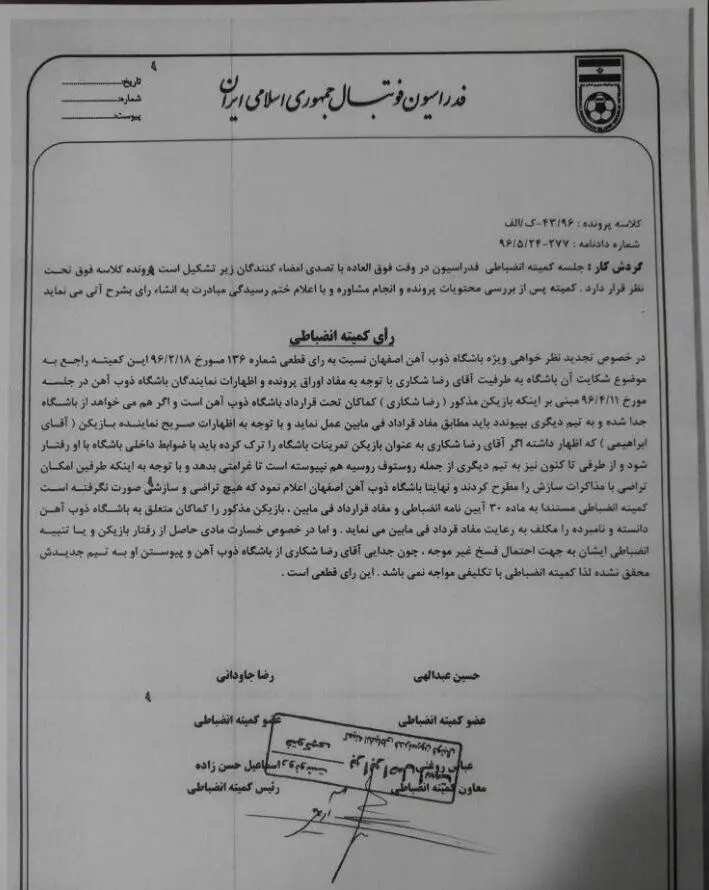 فدراسیون فوتبال جمهوری اسلامی ایران
تاریخ:
شماره:
پیوست:
کلاسه پرونده : ۴۳/۹۶-ک/الف
شماره دادنامه : ۲۷۷-۹۶/۵/۲۴
گردش کار : جلسه کمیته انضباطی فدراسیون در وقت فوق العاده با تصدی امضاء کنندگان زیر تشکیل است پرونده کلاسه فوق تحت
نظر قرار دارد . کمیته پس از بررسی محتویات پرونده و انجام مشاوره و با اعلام ختم رسیدگی مبادرت به انشاء رای بشرح آتی می نماید
رأی کمیته انضباطی
در خصوص تجدید نظر خواهی ویژه باشگاه ذوب آهن اصفهان نسبت به رای قطعی شماره ۱۳۶ مورخ ۹۶/۲/۱۸ ایسن کمیته راجع به
موضوع شکایت آن باشگاه به طرفیت آقای رضا شکاری با توجه به مفاد اوراق پرونده و اظهارات نمایندگان باشگاه ذوب آهن در جلسه
مورخ ۹۶/۴/۱۱ مبنی بر اینکه بازیکن مذکور ( رضا شکاری ) کماکان تحت قرارداد باشگاه ذوب آهن است و اگر هم می خواهد از باشگاه
جدا شده و به تیم دیگری بپیوندد باید مطابق مفاد قراداد فی مابین عمل نماید و با توجه به اظهارات صریح نماینده بازیکن ( آقای
ابراهیمی ) که اظهار داشته اگر آقای رضا شکاری به عنوان بازیکن تمرینات باشگاه را ترک کرده باید با ضوابط داخلی باشگاه با او رفتار
شود و از طرفی تا کنون نیز به تیم دیگری از جمله روستوف روسیه هم نپیوسته است تا غرامتی بدهد و با توجه به اینکه طرفین امکان
تراضی با مذاکرات سازش را مطرح کردند و نهایتا باشگاه ذوب آهن اصفهان اعلام نمود که هیچ تراضی و سازشی صورت نگرفته است
کمیته انضباطی مستندا به ماده ۳۰ آیین نامه انضباطی و مفاد قرارداد فی مابین ، بازیکن مذکور را کماکان متعلق به باشگاه ذوب آهن
دانسته و نامبرده را مکلف به رعایت مفاد قرداد فی مابین می نماید . و اما در خصوص خسارت مادی حاصل از رفتار بازیکن و یا تنبیه
انضباطی ایشان به جهت احتمال فسخ غیر موجه ، چون جدایی آقای رضا شکاری از باشگاه ذوب آهن و پیوستن او به تیم جدیدش
محقق نشده لذا کمیته انضباطی با تکلیفی مواجه نمی باشد . این رای قطعی است .
حسین عبدالهی
رضا جاودانی
عضو کمیته انضباطی
عضو کمیته انضباطی
عباس روغنی
اسماعیل حسن زاده
معاون کمیته انضباطی
رئیس کمیته انضباطی
کمیته انضباطی فدراسیون فوتبال
برابر اصل است